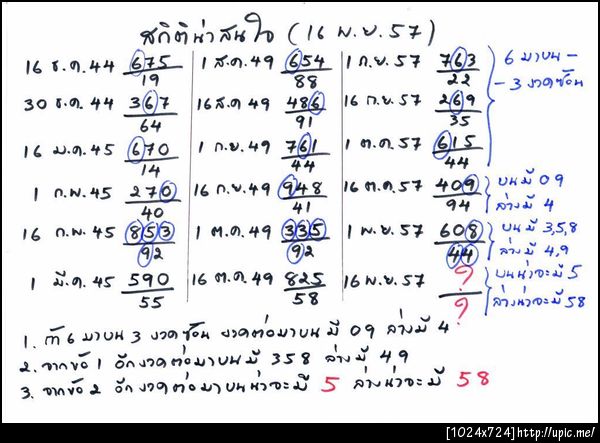 สถิติน่าสนใจ (16 พ.ย. 57)
16 ธ.ค. 44 675 1 ส.ค. 49 654 1 ก.ย. 57 763 6 มาบน -
19 88 22 - 3 งวดซ้อน
30 ธ.ค. 44 367 16 ส.ค. 49 486 16 ก.ย. 57 269
64 91 35
16 ม.ค. 45 670 1 ก.ย. 49 761 1 ต.ค. 57 615
14 44 44
1 ก.พ. 45 270 16 ก.ย. 49 948 16 ต.ค. 57 409 บนมี 09
40 41 94 ล่างมี 4
16 ก.พ. 45 853 1 ต.ค. 49 335 1 พ.ย. 57 608 บนมี 3,5,8
92 92 44 ล่างมี 4,9
1 มี.ค. 45 590 16 ต.ค. 49 825 16 พ.ย. 57 ? บนน่าจะมี 5
55 58 ? ล่างน่าจะมี 58
1. ถ้า 6 มาบน 3 งวดซ้อน งวดต่อมาบนมี 09 ล่างมี 4
2. จากข้อ 1 อีกงวดต่อมาบนมี 358 ล่างมี 49
3. จากข้อ 2 อีกงวดต่อมาบนน่าจะมี 5 ล่างน่าจะมี 58
[1024x724]http://upic.me/